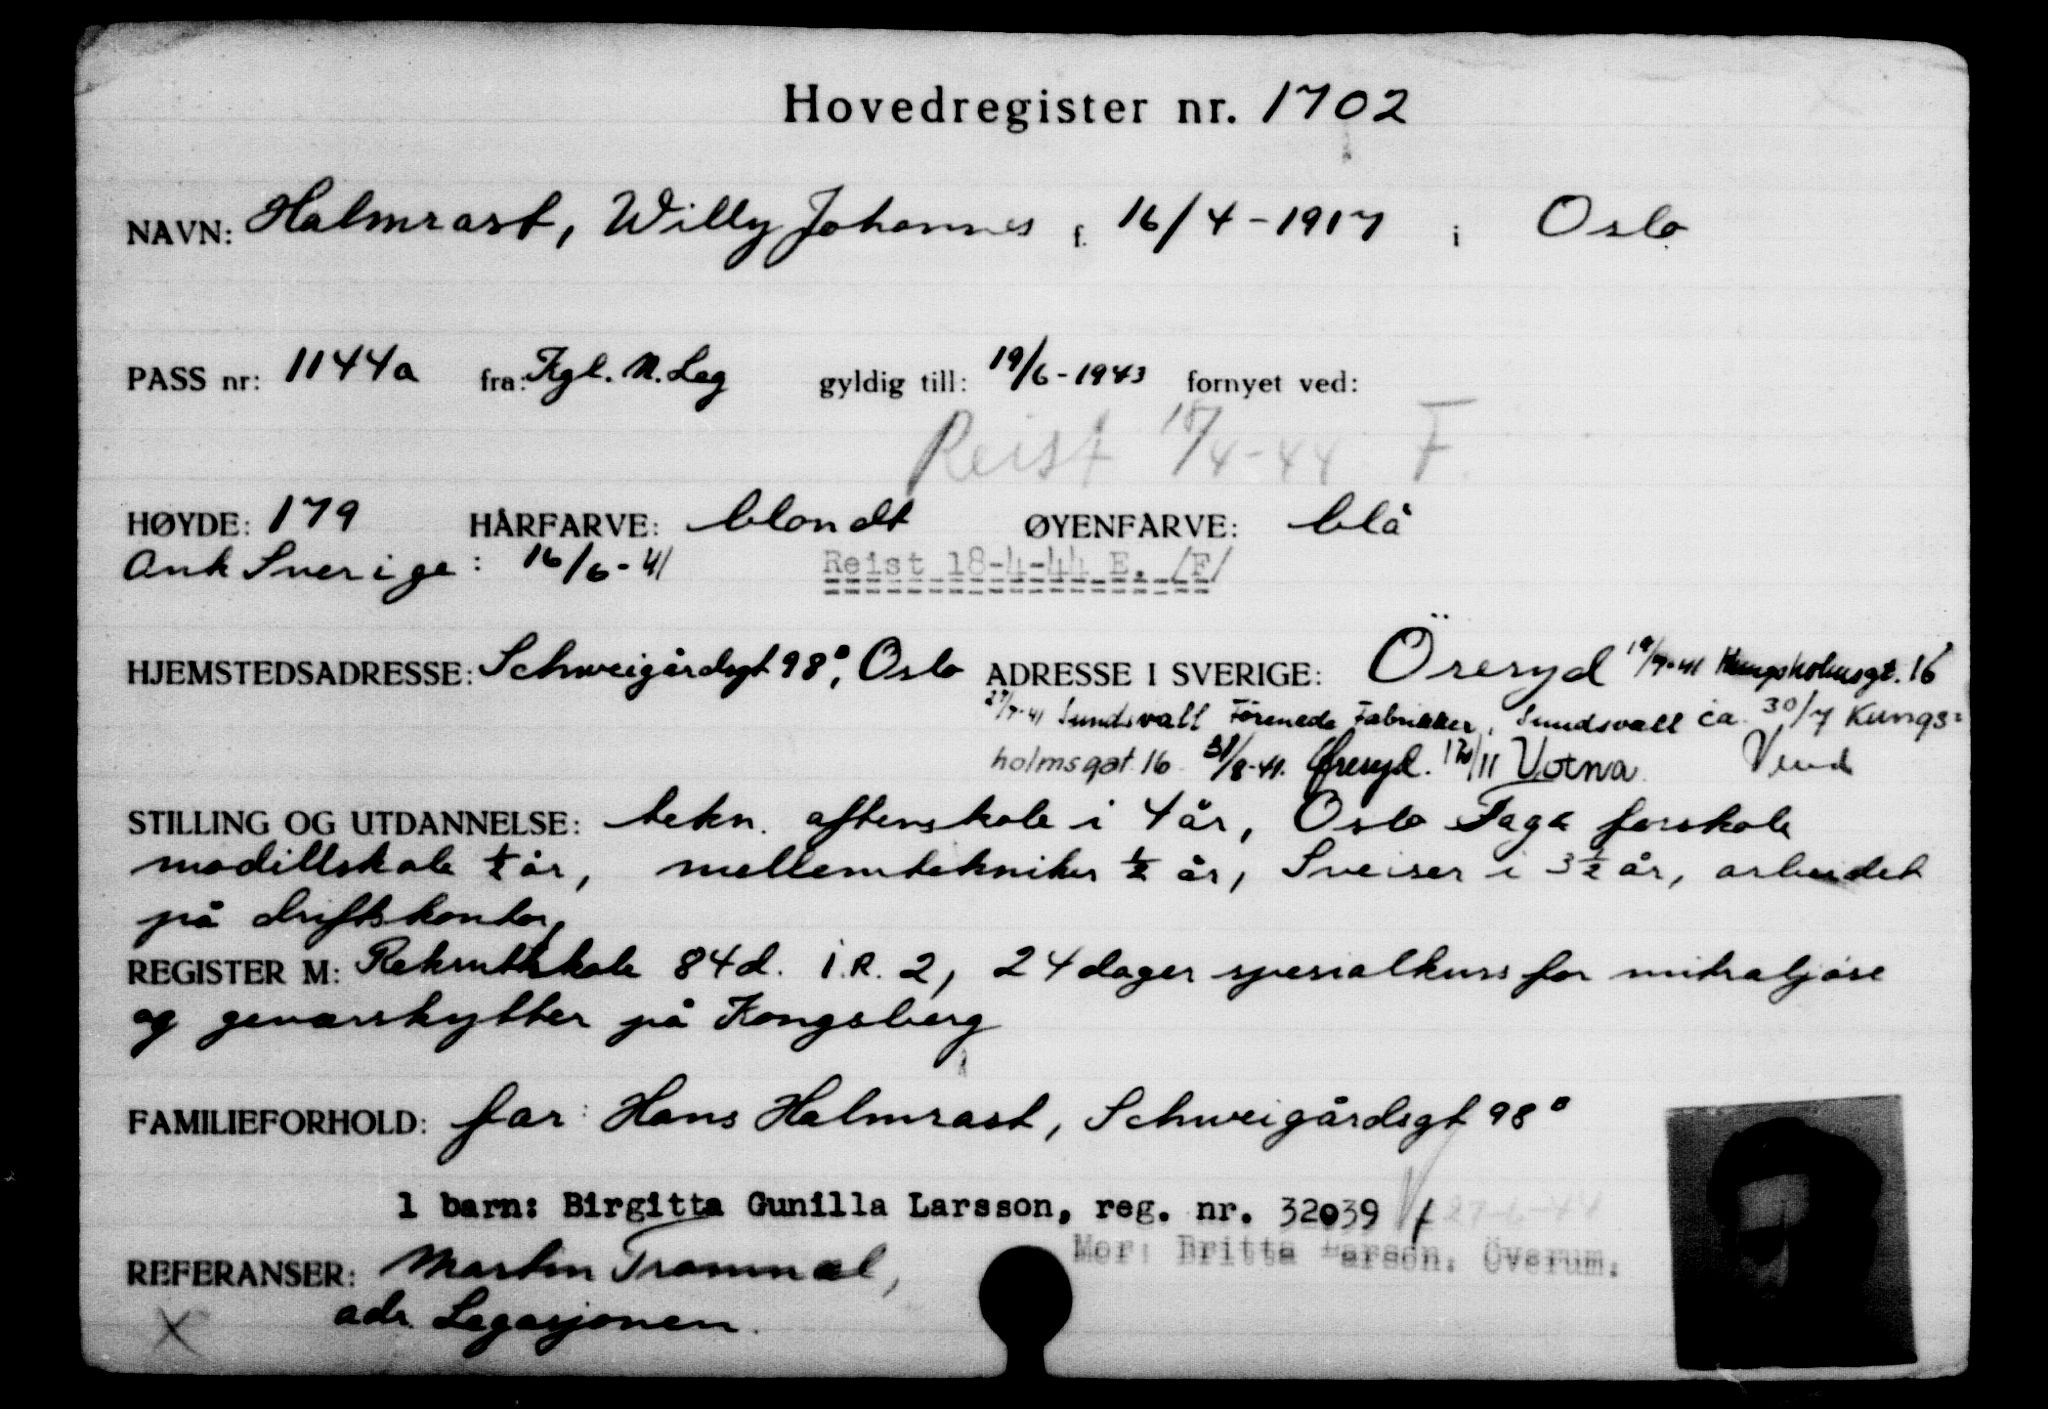 Hovedregister nr. 1702
NAVN: Halmrast, Willy Johannes f. 16/4-1917 i Oslo
PASS nr: 1144a fra: Kgl. N. Leg gyldig till: 19/6-1943 fornyet ved:
Reist 18/4-44 F
HØYDE: 179 HÅRFARVE: blondt ØYENFARVE: blå
Ank Sverige: 16/6-41 Reist 18-4-44 E. /F/
HJEMSTEDSADRESSE: Schweigårdsgt 98, Oslo ADRESSE I SVERIGE: Öreryd 19/7-41 Kungsholmsgt. 16
29/7-41 Sundsvall Förenede Fabrikker, Sundsvall ca. 30/7 Kungs=
holmsgat 16 31/8-41. Øreryd. 12/11 Votna Vend
STILLING OG UTDANNELSE: tekn. aftenskole i 4 år, Oslo Fags forskole
modillskole ½ år, mellemtekniker ½ år, Sveiser i 3½ år, arbeidet
på driftskontor,
REGISTER M: Rekruttskole 84 d. I.R. 2, 24 dager spesialkurs for mitraljøse
og geværskytter på Kongsberg
FAMILIEFORHOLD: far: Hans Halmrast, Schweigårdsgt 98
1 barn: Birgitta Gunilla Larsson, reg. nr. 32039 f 27-6-44
Mor: Britta Larson. Överum.
REFERANSER: Martin Trammæl,
adr. Legasjonen.
X